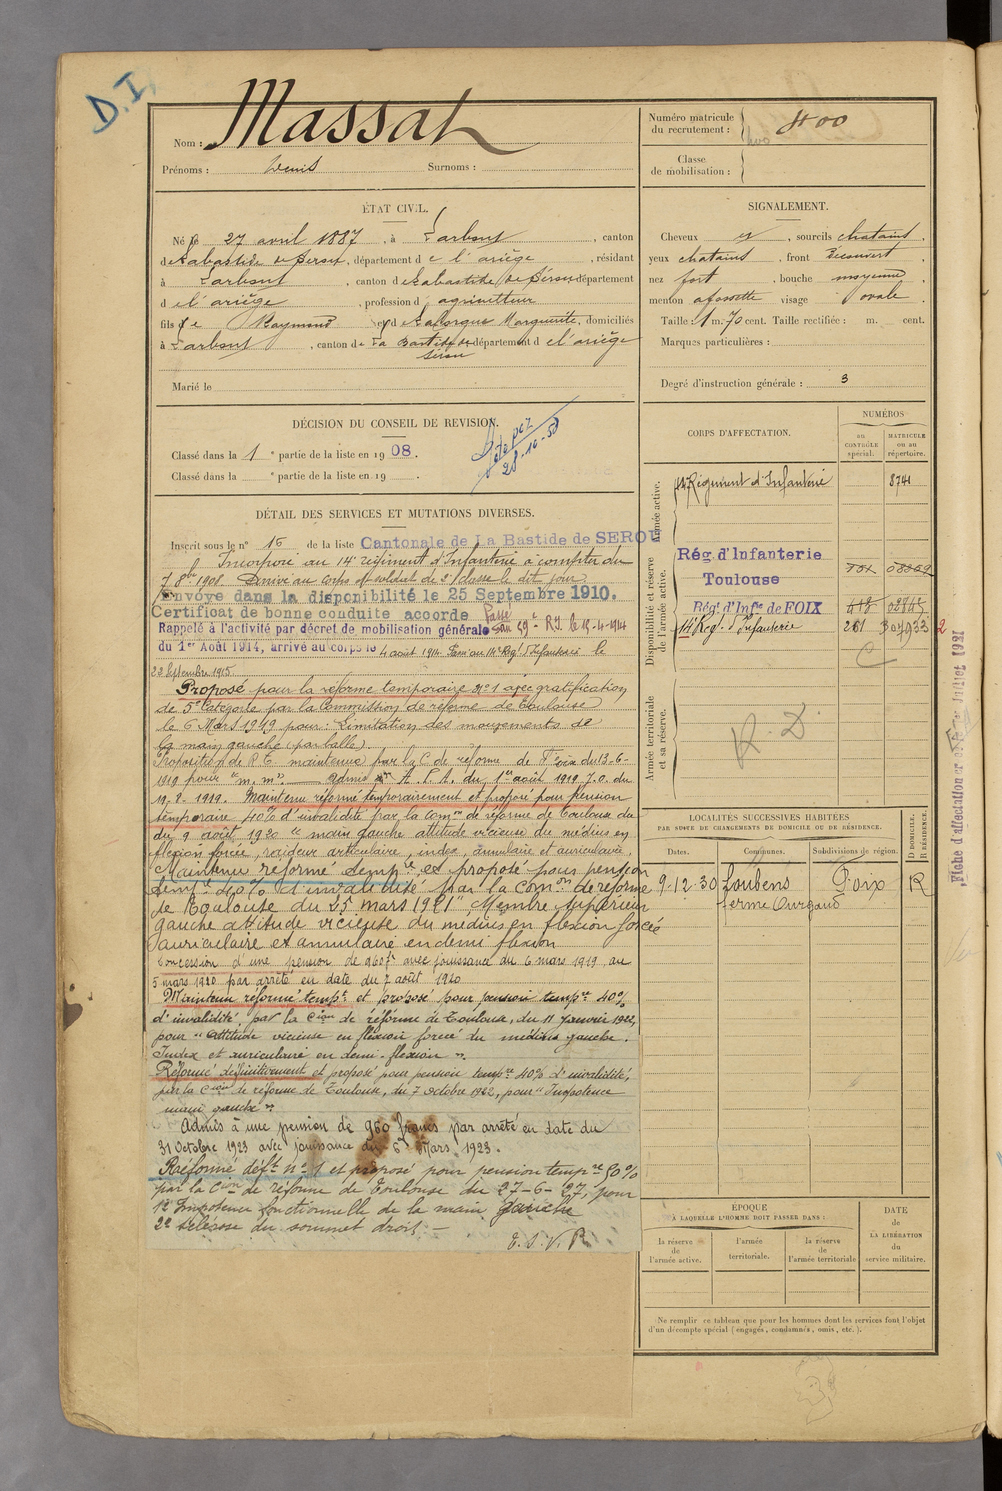 D.I.
Nom : Massat
Prénoms : Denis Surnoms :
Numéro matricule
du recrutement : 400
Classe
de mobilisation :
ÉTAT CIVIL.
Né le 27 avril 1887, à Larbont, canton
de Labastide de Sérou, département de l'ariège, résidant
à Larbont, canton de Labastide de Sérou département
de l'ariège, profession d agriculteur
fils de Raymond et de Laborgue Marguerite, domiciliés
à Larbont, canton de La Bastide de Sérou département de l'ariège
Marié le
SIGNALEMENT.
Cheveux et, sourcils chatains,
yeux chatains, front découvert
nez fort, bouche moyenne
menton a fossette visage ovale
Taille : 1 m. 70 cent. Taille rectifiée : m. cent.
Marques particulières :
Degré d'instruction générale : 3
DÉCISION DU CONSEIL DE REVISION.
Classé dans la 1e partie de la liste en 1908.
Classé dans la e partie de la liste en 19 .
28-10-58
CORPS D'AFFECTATION.
NUMÉROS
au CONTRÔLE spécial.
MATRICULE ou au répertoire.
Armée active.
14e Régiment d'Infanterie 8741
Disponibilité et réserve de l'armée active.
Rég. d'Infanterie
Toulouse
Rég. d'Infie de FOIX
14 Reg. d'Infanterie 261
C
Armée territoriale et sa réserve.
R. D.
DÉTAIL DES SERVICES ET MUTATIONS DIVERSES.
Inscrit sous le n° 16 de la liste Cantonale de La Bastide de SEROU
Incorporé au 14e régiment d'Infanterie à compter du
7 8bre 1908. Arrivé au corps et soldat de 2e classe le dit jour
Envoyé dans la disponibilité le 25 Septembre 1910.
Certificat de bonne conduite accordé Passé
Rappelé à l'activité par décret de mobilisation générale au 59e R.I. le 15-4-1914
du 1er Août 1914, arrivé au corps le 4 août 1914. Passé au 14e Reg. d'Infanterie le
22 Septembre 1915
Proposé pour la réforme temporaire n°1 avec gratification
de 5e catégorie par la Commission de réforme de Toulouse
le 6 Mars 1919 pour : Limitation des mouvements de
la main gauche (par balle).
Proposition de R.T. maintenue par la C. de réforme de Foix du 13-6-
1919 pour "m. m". Admis A.F.A. du 1er août 1919 J.O. du
Maintenu réformé temporairement et proposé pour pension
temporaire 40% d'invalidité par la Comon de réforme de Toulouse du
du 9 août 1920 "main gauche attitude vicieuse du médius en
flexion forcée, raideur articulaire, index, annulaire et auriculaire.
Maintenu réformé tempre et proposé pour pension
tempre 40% d'invalidité par la Comon de réforme
de Toulouse du 25 mars 1921 "Membre supérieur
gauche attitude vicieuse du médius en flexion forcée
auriculaire et annulaire en demi flexion
Concession d'une pension de 960f avec jouissance du 6 mars 1919 au
5 mars 1920 par arrêté en date du 7 août 1920
Maintenu réformé tempt et proposé pour pension tempre 40%
d'invalidité par la Cion de réforme de Toulouse, du 11 Janvier 1922,
pour "Attitude vicieuse en flexion forcée du médius gauche.
Index et auriculaire en demi-flexion".
Réformé définitivement et proposé pour pension tempre 40% d'invalidité,
par la Cion de réforme de Toulouse, du 7 octobre 1922, pour "Impotence
main gauche"
Admis à une pension de 960 francs par arrêté en date du
31 Octobre 1923 avec jouissance du 6 Mars 1923.
Réformé déft n° 1 et proposé pour pension tempre 50%
par la Cion de réforme de Toulouse du 27-6-27, pour
1° Impotence fonctionnelle de la main gauche
2° Sclérose du sommet droit.
LOCALITÉS SUCCESSIVES HABITÉES
PAR SUITE DE CHANGEMENTS DE DOMICILE OU DE RÉSIDENCE.
Dates. Communes. Subdivisions de région. D DOMICILE. R RÉSIDENCE.
9-12-30 Loubens Foix R
ferme
ÉPOQUE
À LAQUELLE L'HOMME DOIT PASSER DANS :
la réserve de l'armée active.
l'armée territoriale.
la réserve de l'armée territoriale
DATE
de
LA LIBÉRATION
du
service militaire.
Ne remplir ce tableau que pour les hommes dont les services font l'objet
d'un décompte spécial (engagés, condamnés, omis, etc.).
Fiche d'affectation